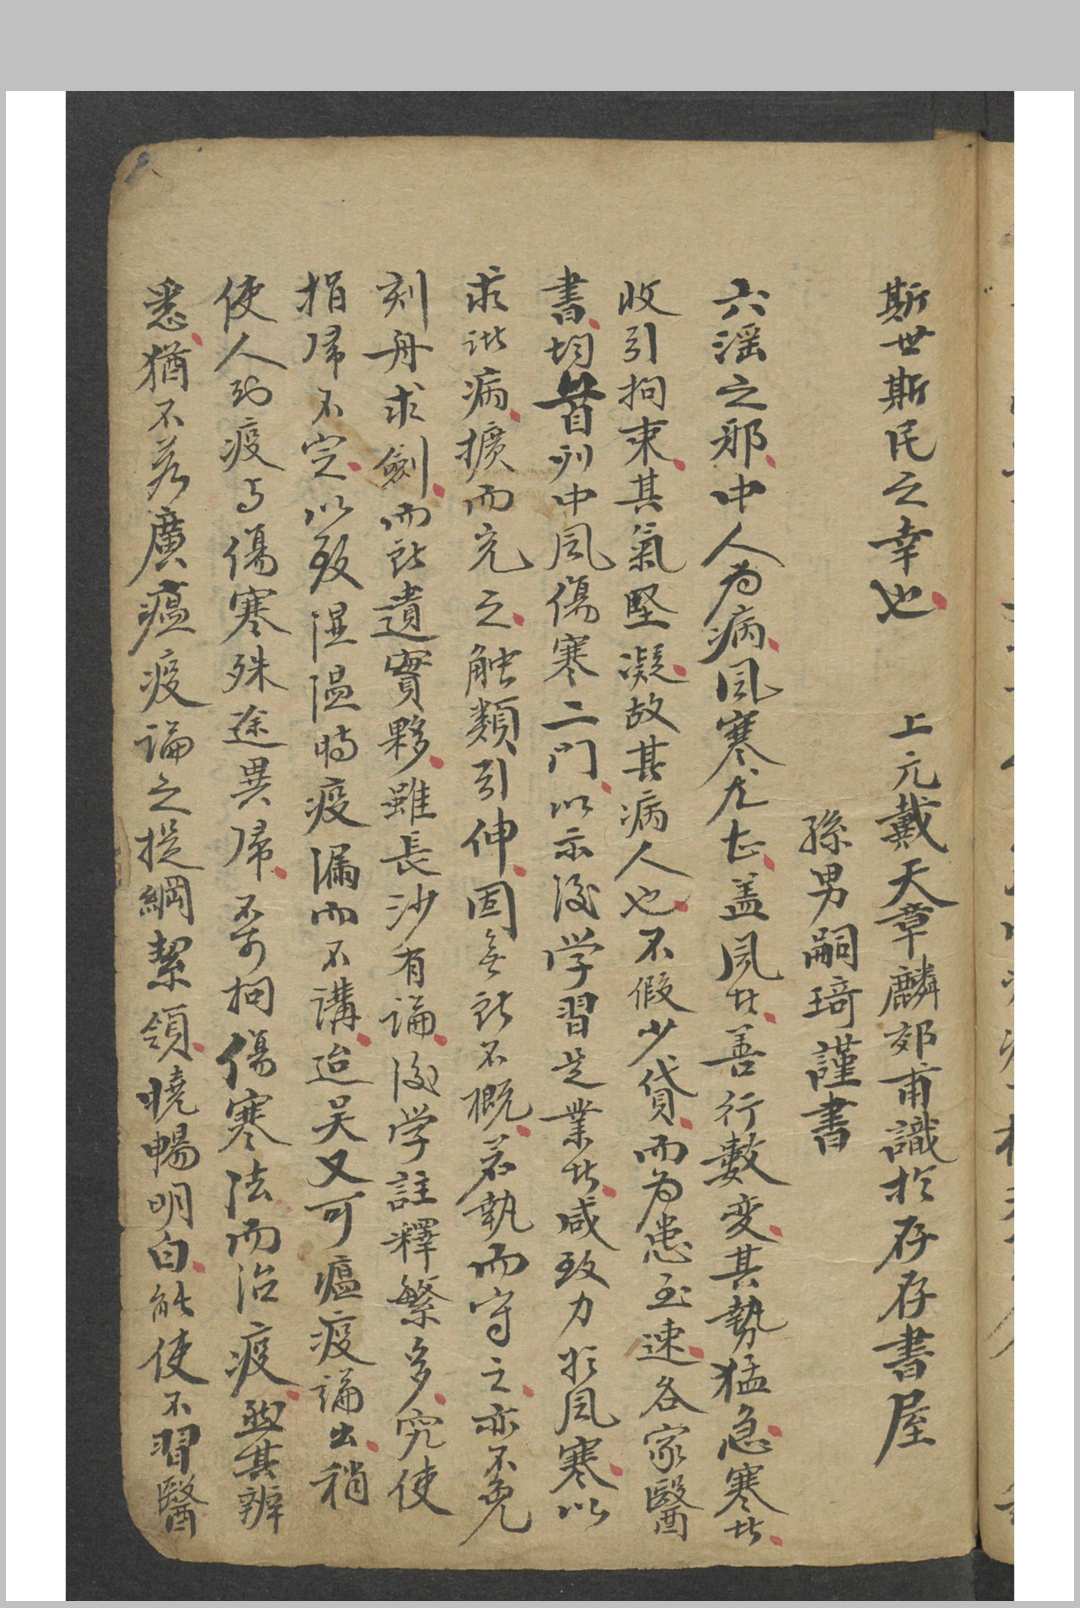 斯世斯民之幸也 上元戴天章麟郊甫識於存存書屋
孫男嗣琦謹書
六淫之邪中人為病風寒尤甚盖風者善行數变其勢猛急寒者
收引拘束其氣堅凝故其病人也不假少貸而為患至速各家醫
書均首列中風傷寒二門以示後学習是業者咸致力於風寒以
求諸病擴而充之触類引伸固無所不概若執而守之亦不免
刻舟求劍而所遺實夥雖長沙有論後学註釋繁多究使
指帰不定以致湿温時疫漏而不講迨吴又可瘟疫論出稍
使人知疫与傷寒殊途異帰不可拘傷寒法而治疫然其辨
悉猶不若廣瘟疫論之提綱絜領曉暢明白能使不習醫